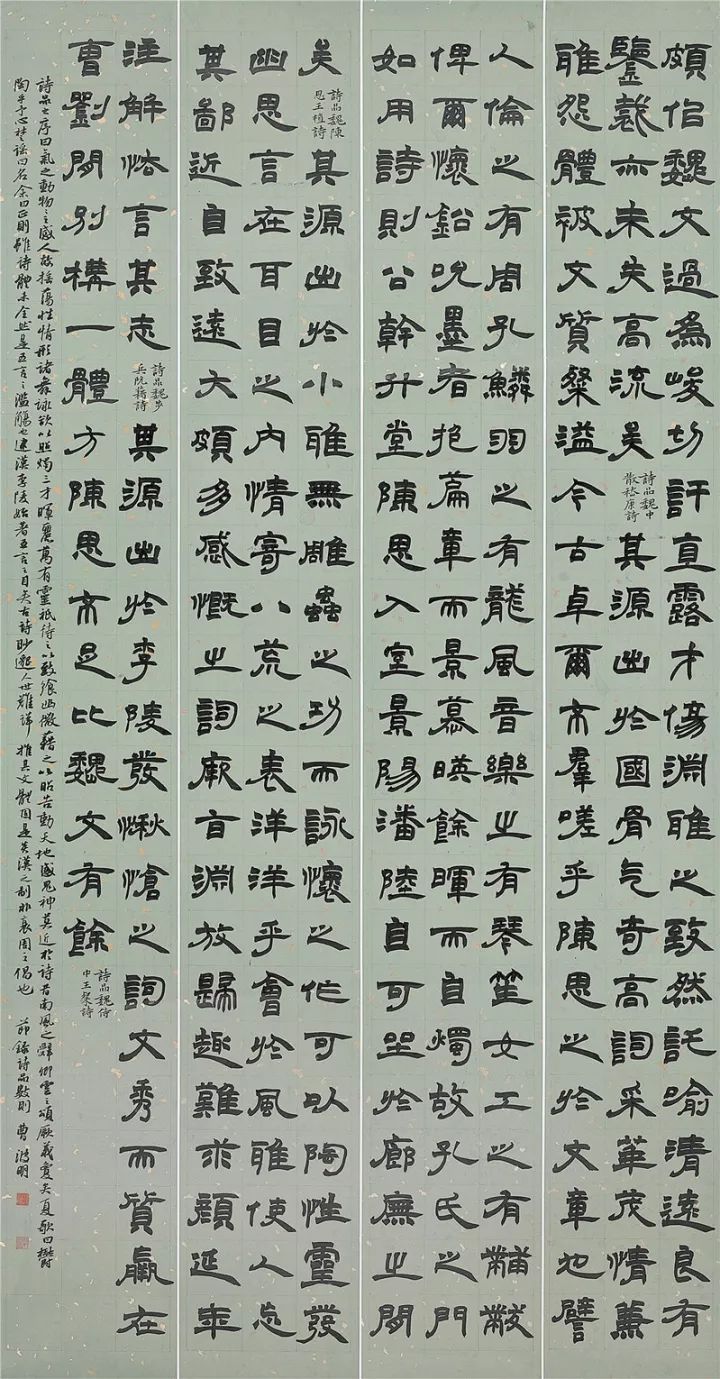 頗似魏文過為峻切訐直露才傷淵雅之致然託喻清遠良有
鑒裁亦未失高流矣 詩品魏中散嵇康詩 其源出於國骨气奇高詞采華茂情兼
雅怨體被文質粲溢今古卓爾不羣嗟乎陳思之於文章也譬
人倫之有周孔鱗羽之有龍鳳音樂之有琴笙女工之有黼黻
俾爾懷鉛吮墨者抱篇章而景慕暎餘暉而自燭故孔氏之門
如用詩則公幹升堂陳思入室景陽潘陸自可坐於廊廡之間
矣 詩品魏陳思王植詩 其源出於小雅無雕蟲之功而詠懷之作可以陶性靈發
幽思言在耳目之內情寄八荒之表洋洋乎會於風雅使人忘
其鄙近自致遠大頗多感慨之詞厥旨淵放歸趣難求顏延年
注解怯言其志 詩品魏步兵阮籍詩 其源出於李陵發愀愴之詞文秀而質羸在
曹劉間別構一體方陳思不足比魏文有餘 詩品魏侍中王粲詩
詩品之序曰氣之動物物之感人故搖蕩性情形諸舞詠欲以照燭三才暉麗萬有靈祇待之以致饗幽微藉之以昭告動天地感鬼神莫近於詩昔南風之辭卿雲之頌厥義夐矣夏歌曰鬱
陶乎予心楚謠曰名余曰正則雖詩體未全然是五言之濫觴也逮漢李陵始著五言之目矣古詩眇邈人世難詳推其文體固是炎漢之制非衰周之倡也 節錄詩品數則 曹明